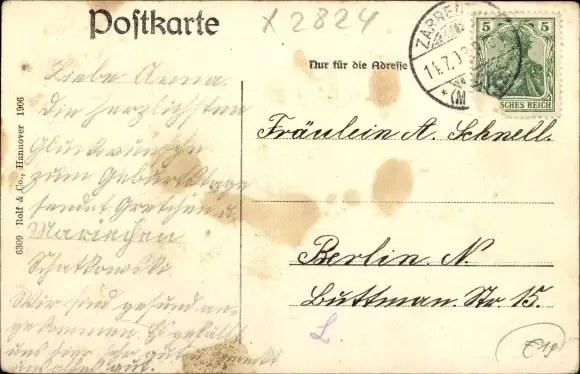 Postkarte
X 2824
ZARRENT
11.7.0
*(M
5 5
SCHES REICH
Nur für die Adresse
Liebe Anna.
Die herzlichsten
Glückwünsche
zum Geburtstage
sendet Gretchen u.
Mariechen
Schatkowski.
Wir sind gesund an-
gekommen. Es gefällt
uns hier sehr gut.
6309 Rolf & Co., Hannover 1906
Fräulein A. Schnell.
Berlin N.
Buttman. Str. 15.
L.